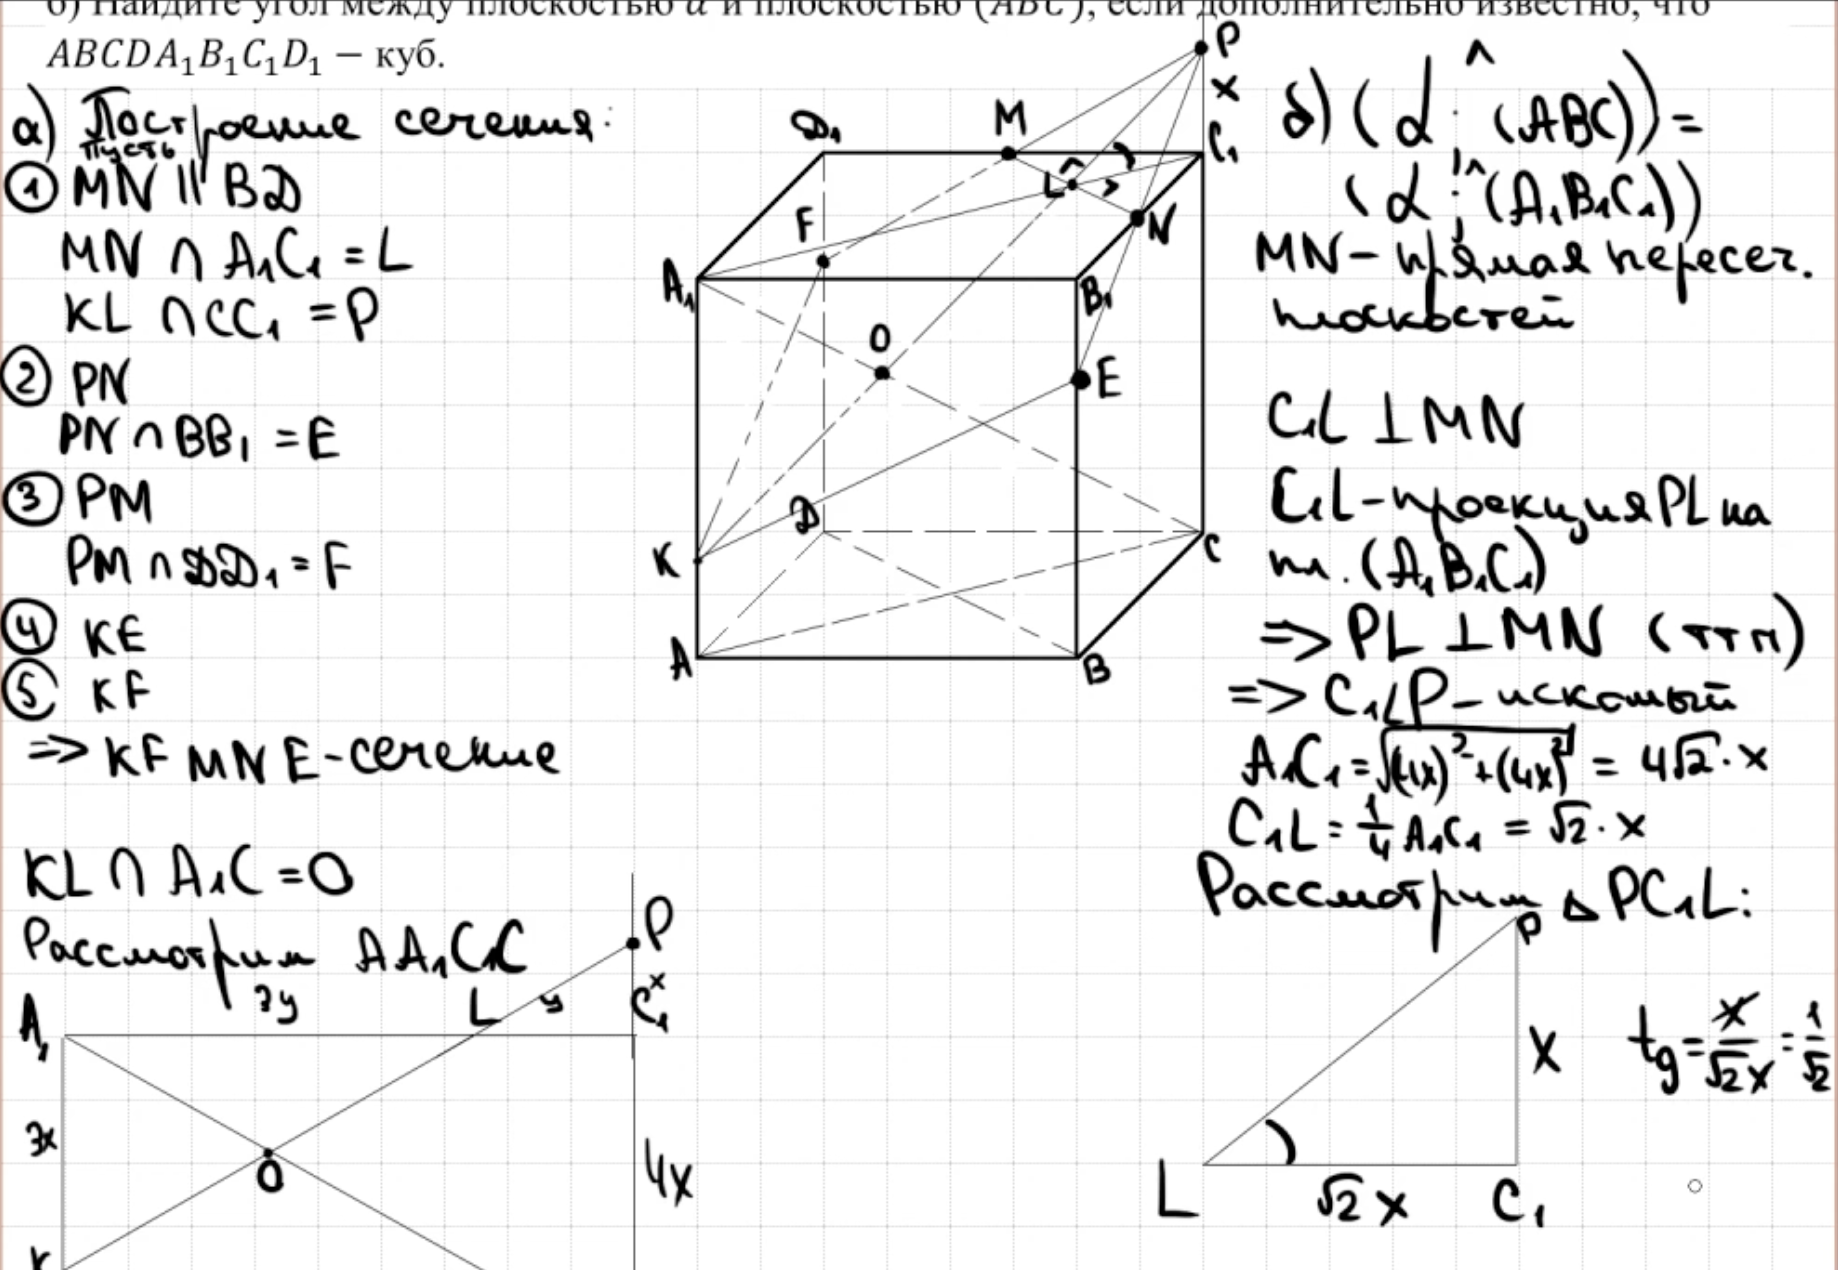 б) Найдите угол между плоскостью α и плоскостью (ABC), если дополнительно известно, что
ABCDA₁B₁C₁D₁ − куб.
а) Построение сечения:
пусть
① MN || BD
MN ∩ A₁C₁ = L
KL ∩ CC₁ = P
② PN
PN ∩ BB₁ = E
③ PM
PM ∩ DD₁ = F
④ KE
⑤ KF
=> KFMNE - сечение
KL ∩ A₁C = O
Рассмотрим AA₁C₁C
A₁
3y
L
y
P
x
C₁
3x
O
4x
K
P
x
D₁
M
C₁
L
N
F
A₁
B₁
O
E
D
K
C
A
B
б) (α ; (ABC)) =
(α ; (A₁B₁C₁))
MN - прямая пересеч.
плоскостей
C₁L ⊥ MN
C₁L - проекция PL на
пл. (A₁B₁C₁)
=> PL ⊥ MN (ттп)
=> C₁LP - искомый
A₁C₁ = √(4x)² + (4x)² = 4√2 · x
C₁L = 1/4 A₁C₁ = √2 · x
Рассмотрим △ PC₁L:
P
x
tg = x/√2x = 1/√2
L
√2 x
C₁